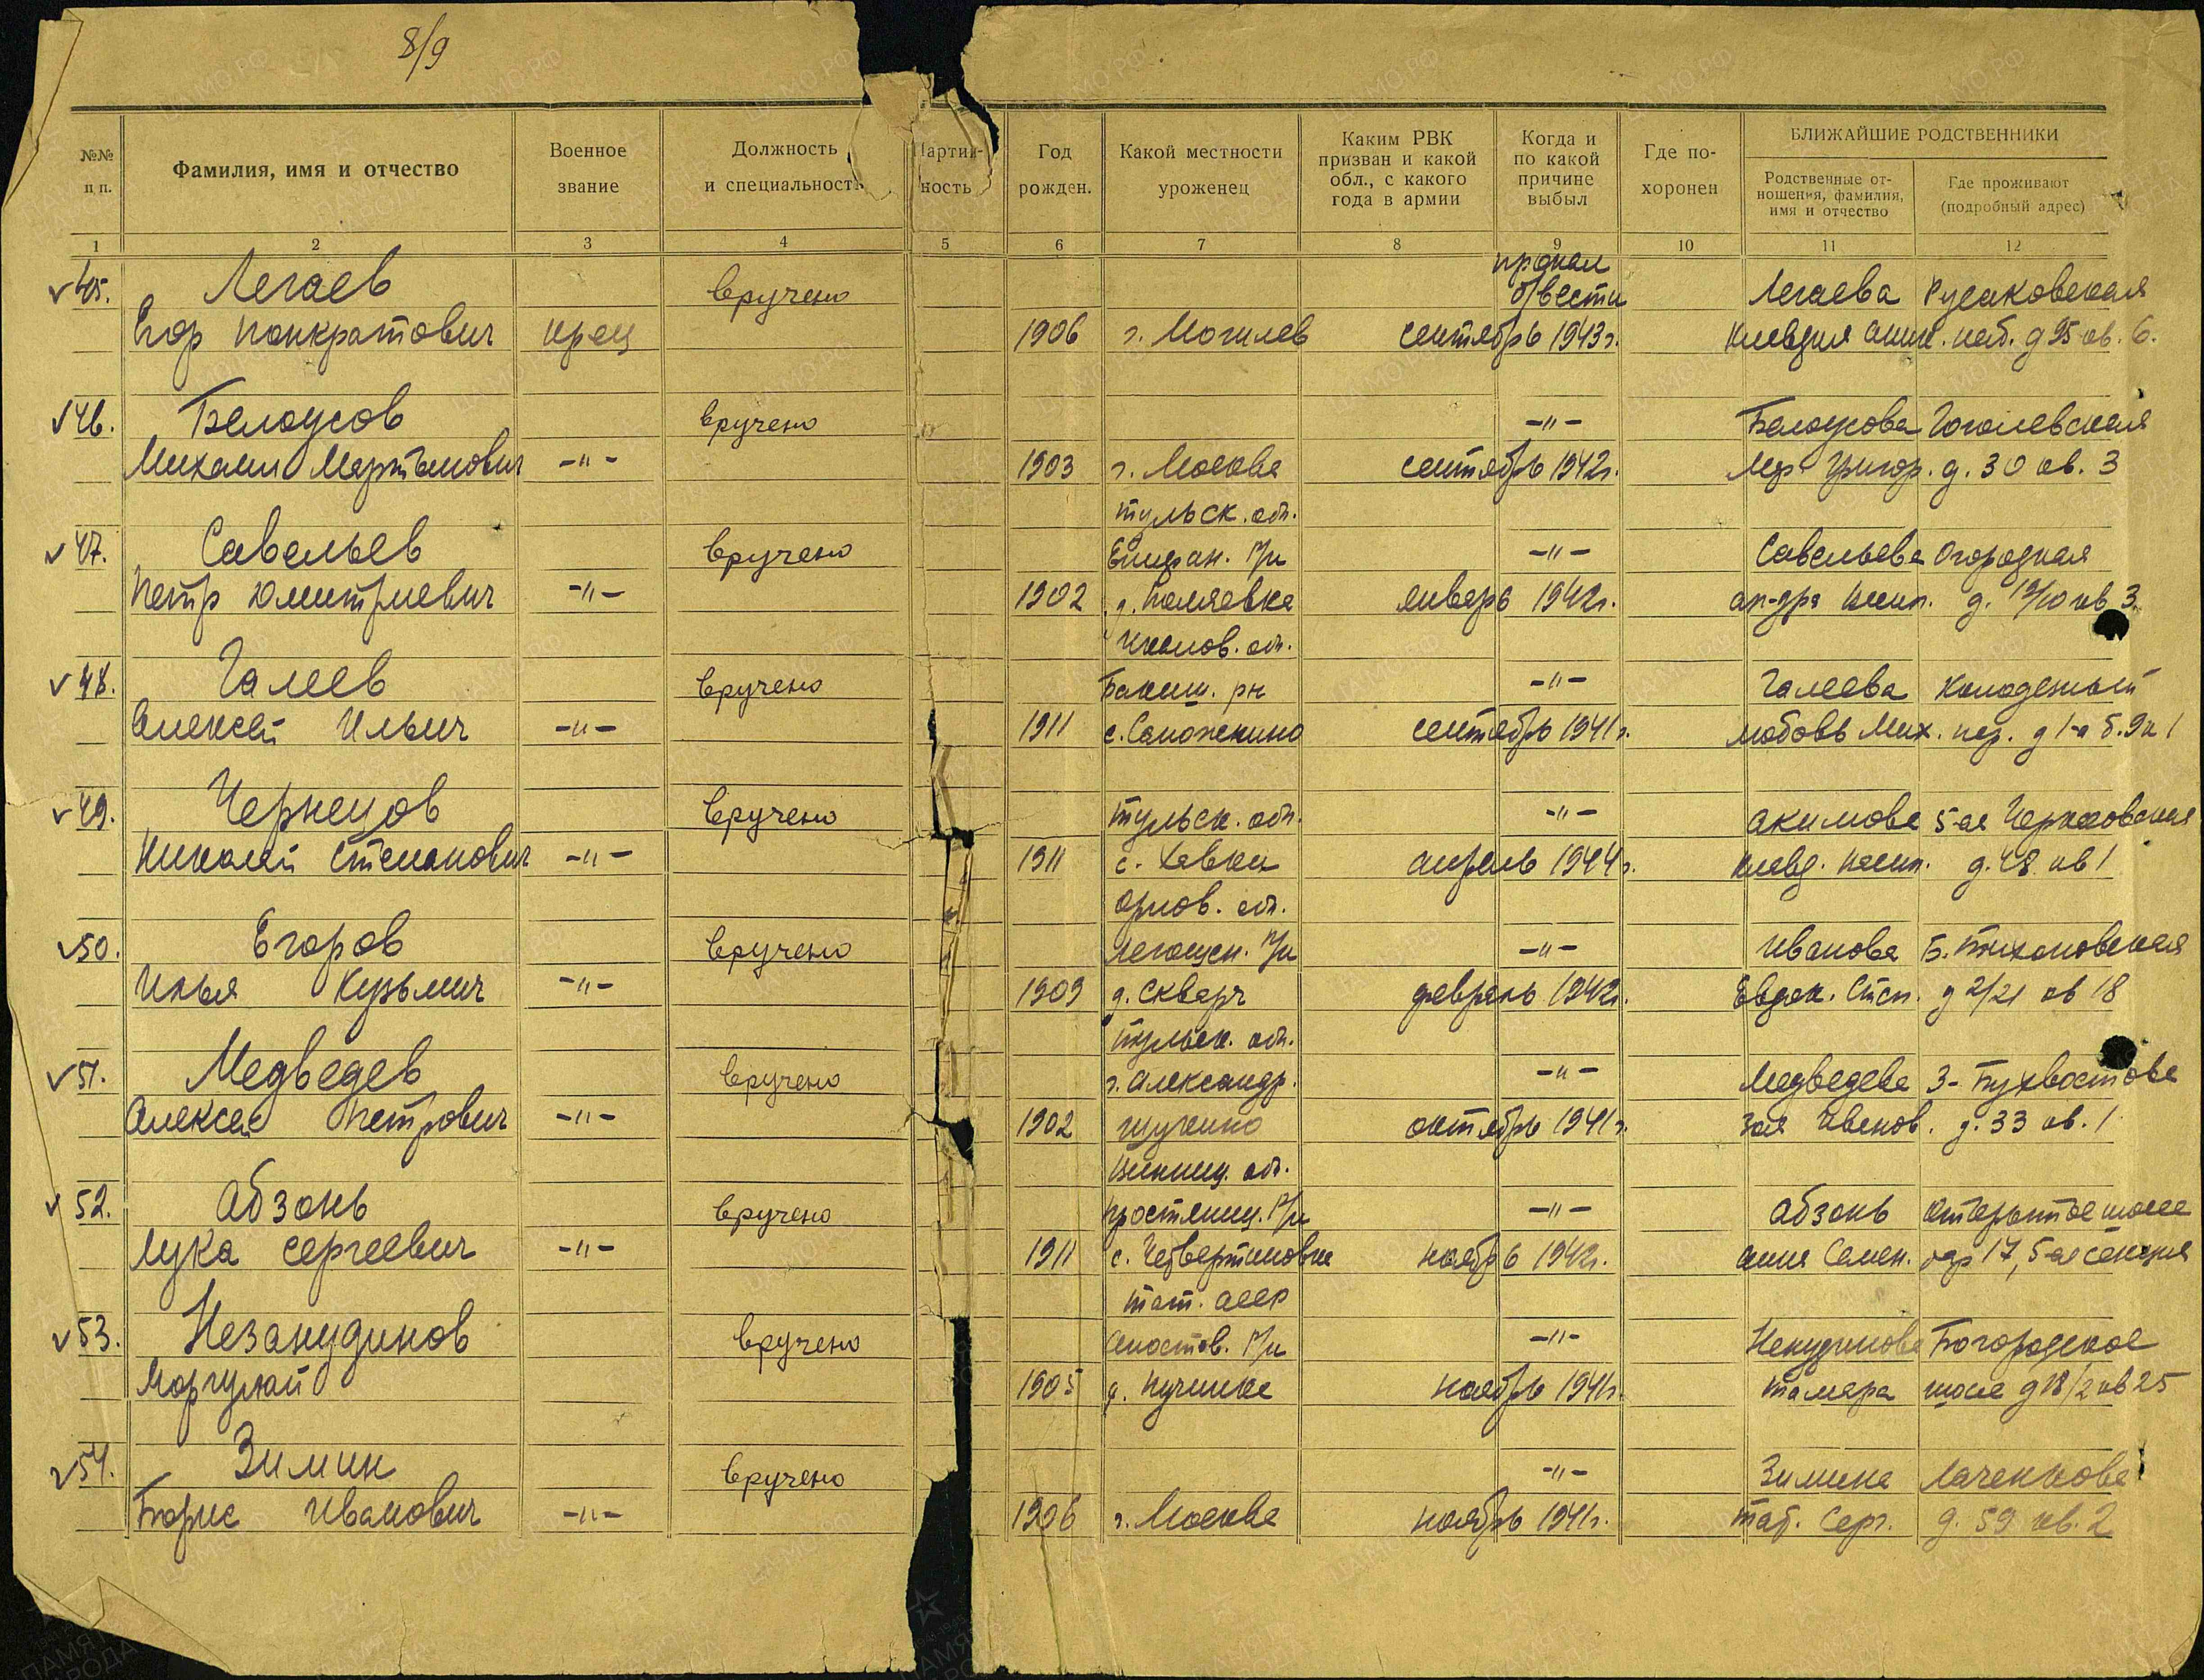 8/9
№№ п п.
Фамилия, имя и отчество
Военное звание
Должность и специальность
Партий-ность
Год рожден.
Какой местности уроженец
Каким РВК призван и какой обл., с какого года в армии
Когда и по какой причине выбыл
Где по-хоронен
БЛИЖАЙШИЕ РОДСТВЕННИКИ
Родственные от-ношения, фамилия, имя и отчество
Где проживают (подробный адрес)
1 2 3 4 5 6 7 8 9 10 11 12
пропал
45. Легаев вручено б/вести Легаева Русаковская
Егор Панкратович крец 1906 г. Могилев сентябрь 1943г. Клавдия наб. д 95 кв. 6.
46. Белоусов вручено -"- Белоусова Гоголевская
Михаил Мартынович -"- 1903 г. Москва сентябрь 1942г. Григор. д. 30 кв. 3
тульск. обл.
47. Савельев вручено Епифан. р/н -"- Савельева Огородная
Петр Дмитриевич -"- 1902 январь 1942г. д. 19/10 кв 3.
48. Галеев вручено рн -"- Галеева Колодезный
Алексей Ильич -"- 1911 с. Сапожкино сентябрь 1941г. Любовь Мих. пер. д 1-а
49. Чернецов вручено тульск. обл. -"- Акимова 5-ая Черкизовская
Николай Степанович -"- 1911 с. Хавки апрель 1944г. Клавд. д. 48 кв 1
орлов. обл.
50. Егоров вручено р/н -"- Иванова Б. Тихоновская
Илья Кузьмич -"- 1909 д. Скварч февраль 1942г. Евдок. Степ. д 2/21 кв 18
тульск. обл.
51. Медведев вручено г. Александр. -"- Медведева 3- Бухвостова
Алексей Петрович -"- 1902 октябрь 1941г. Зоя Иванов. д. 33 кв. 1
Винниц. обл.
52. Абзонь вручено р/н -"- Абзонь Открытое шоссе
Лука Сергеевич -"- 1911 с. Четвертиновка ноябрь 1942г. Анна Семен. 17, 5-ая секция
тат. асср
53. Незамудинов вручено р/н -"- Богородское
Моргулай 1905 ноябрь 1941г. Тамара шоссе д 18/2 кв 25
54. Зимин вручено -"- Зимина Лаченкова
Борис Иванович -"- 1906 г. Москва ноябрь 1941г. Тат. Серг. д. 59 кв. 2